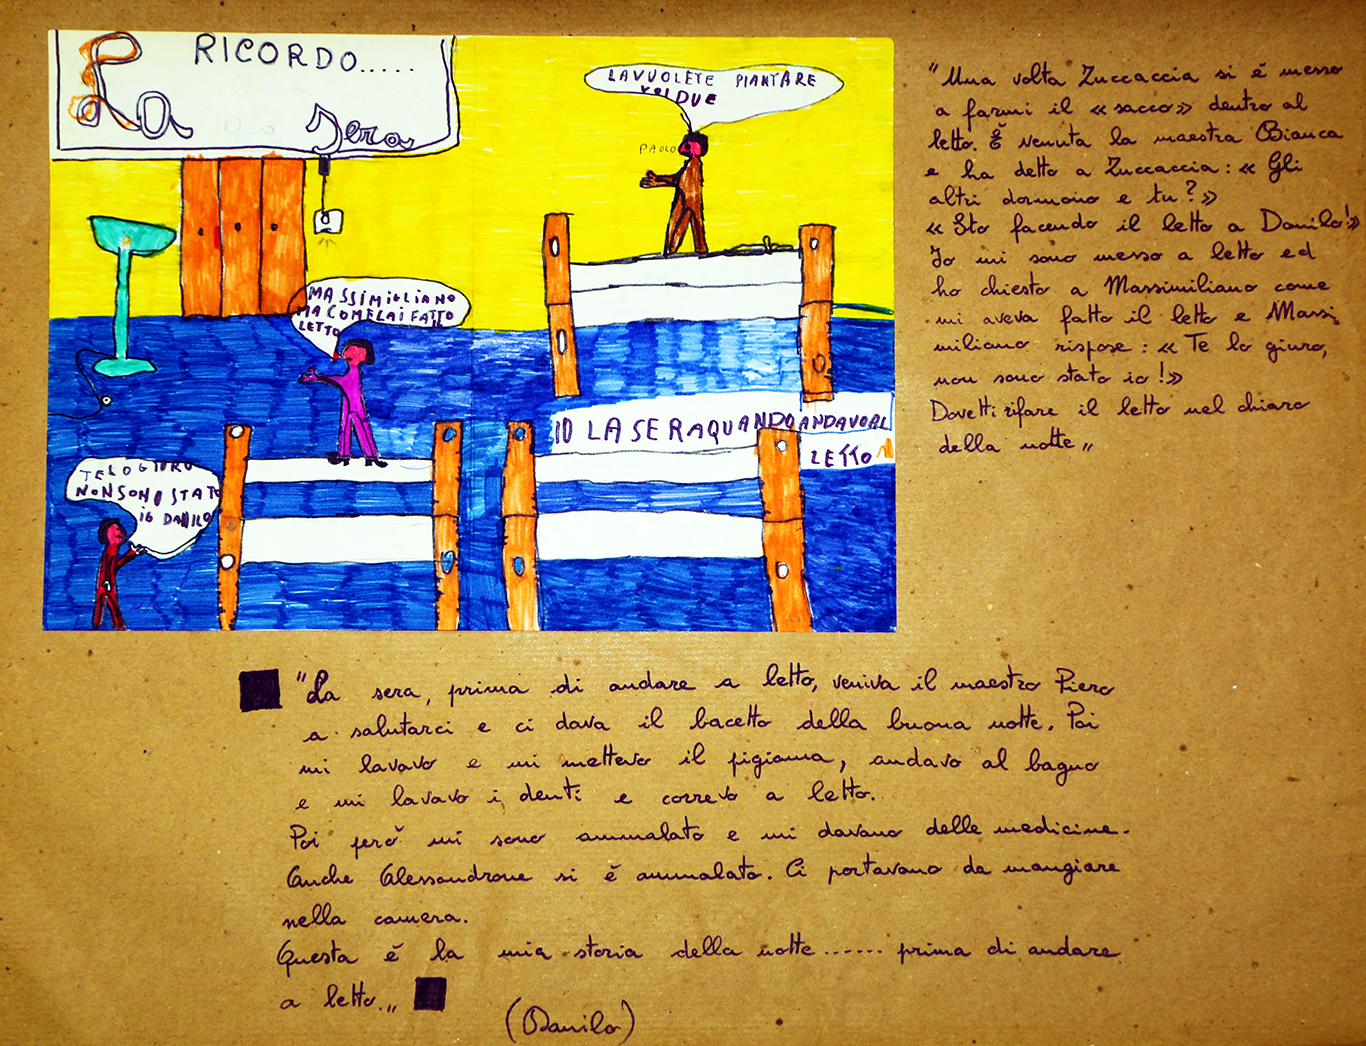 RICORDO.....
La Sera
LA VUOLETE PIANTARE
VOI DUE
PAOLO
MASSIMIGLIANO
MA COME LAI FATTO IL
LETTO
IO LA SERA QUANDO ANDAVO AL
LETTO
TE LO GIURO
NON SONO STATO
IO DANILO
"Una volta Zuccaccia si è messo
a farmi il «sacco» dentro al
letto. È venuta la maestra Bianca
e ha detto a Zuccaccia: «Gli
altri dormono e tu?»
«Sto facendo il letto a Danilo!»
Io mi sono messo a letto ed
ho chiesto a Massimiliano come
mi aveva fatto il letto e Massi
miliano rispose: «Te lo giuro,
non sono stato io!»
Dovetti rifare il letto nel chiaro
della notte"
"La sera, prima di andare a letto, veniva il maestro Piero
a salutarci e ci dava il bacetto della buona notte. Poi
mi lavavo e mi mettevo il pigiama, andavo al bagno
e mi lavavo i denti e correvo a letto.
Poi però mi sono ammalato e mi davano delle medicine.
Anche Alessandrone si è ammalato. Ci portavano da mangiare
nella camera.
Questa è la mia storia della notte...... prima di andare
a letto.."
(Danilo)